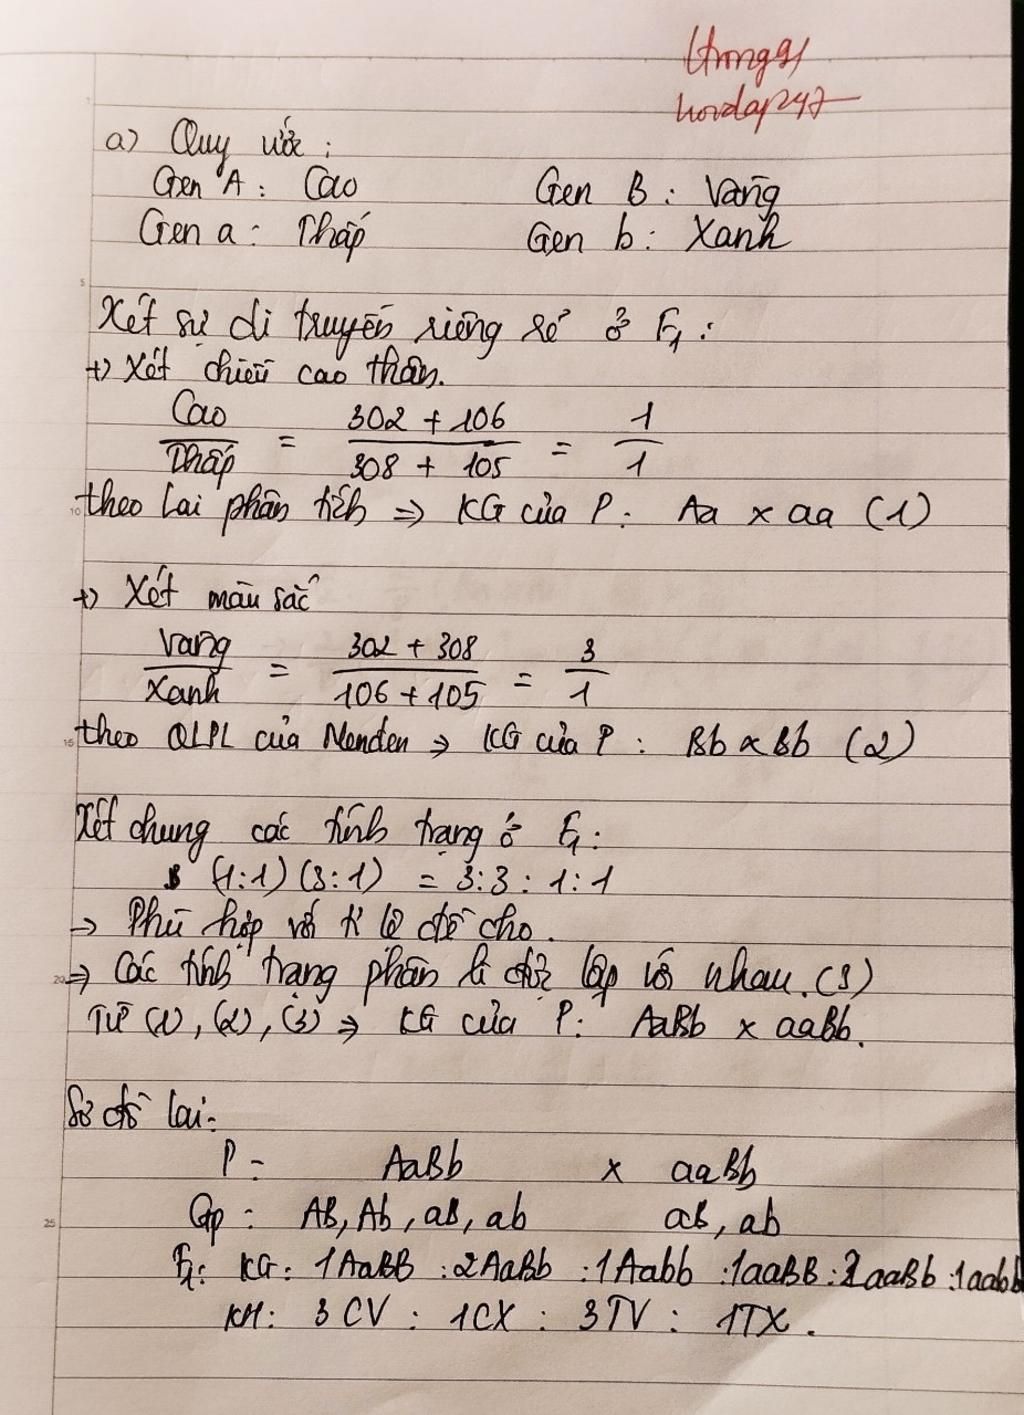 hoidap247
a) Quy ước :
Gen A : Cao Gen B : Vàng
Gen a : Thấp Gen b : Xanh
Xét sự di truyền riêng rẽ ở F1 :
+) Xét chiều cao thân.
Cao / Thấp = 302 + 106 / 308 + 105 = 1 / 1
theo lai phân tích => KG của P : Aa x aa (1)
+) Xét màu sắc
Vàng / Xanh = 302 + 308 / 106 + 105 = 3 / 1
theo QLPL của Menden => KG của P : Bb x Bb (2)
Xét chung các tính trạng ở F1 :
(1:1) (3:1) = 3:3 : 1:1
-> Phù hợp với tỉ lệ đề cho.
=> Các tính trạng phân li độc lập với nhau. (3)
Từ (1), (2), (3) => KG của P : AaBb x aaBb.
Sơ đồ lai :
P : AaBb x aaBb
Gp : AB, Ab, aB, ab aB, ab
F1 : KG : 1AaBB : 2AaBb : 1Aabb : 1aaBB : 2aaBb : 1aabb
KH : 3 CV : 1CX : 3TV : 1TX .